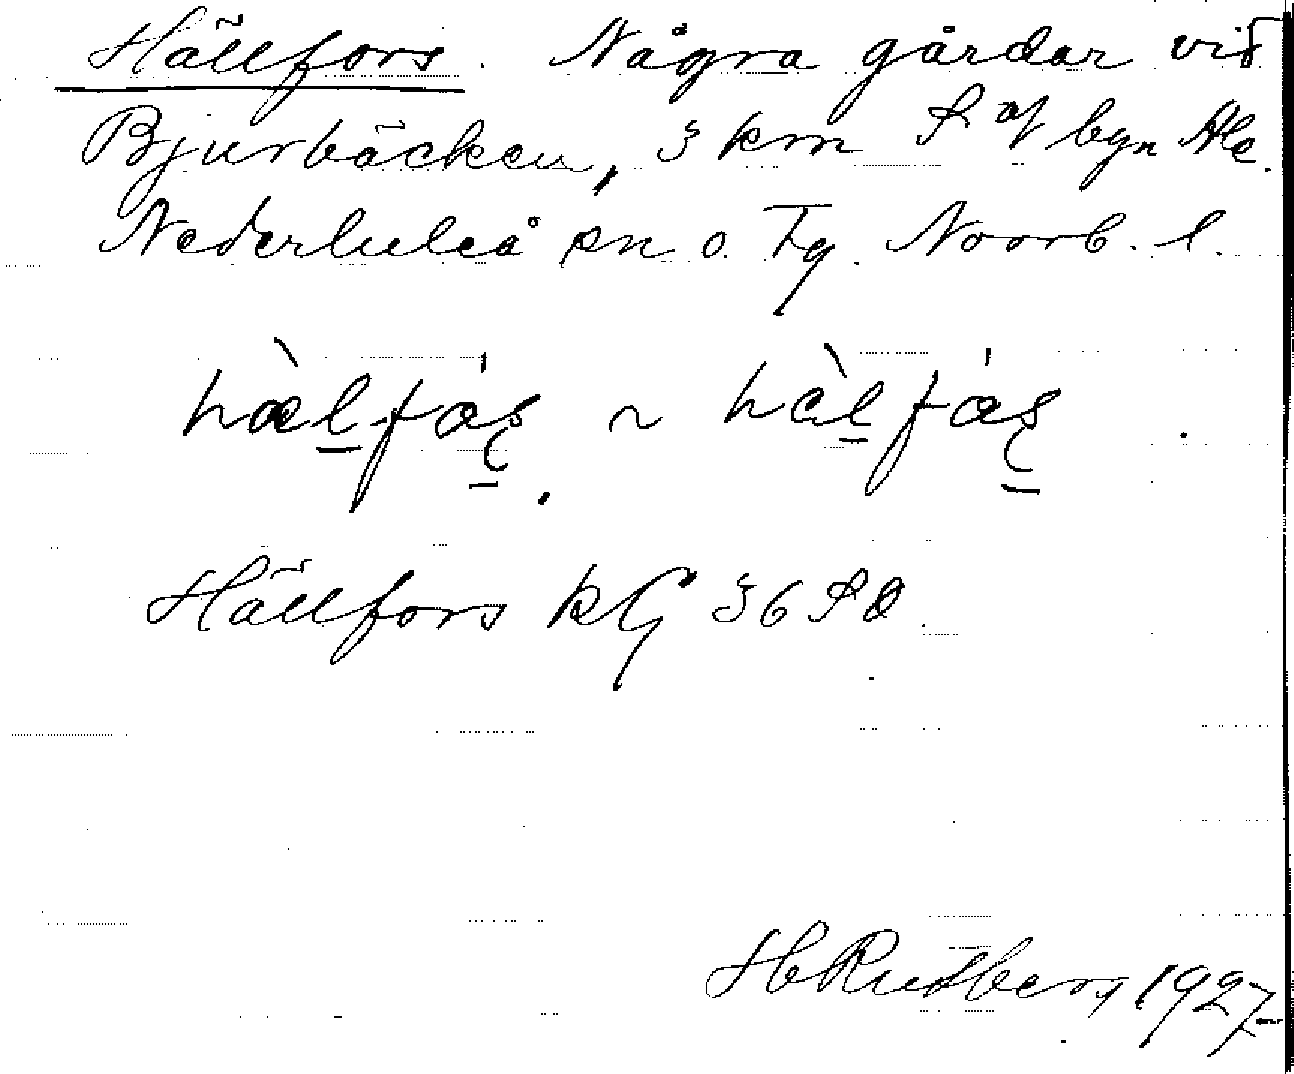 Hällfors. Några gårdar vid
Bjurbäcken, 3 km S af byn Ale.
Nederluleå sn o. Tg. Norrb. l.
hàlfás ~ hàlfás.
Hällfors kG 36 SO.
H Rudberg 1927